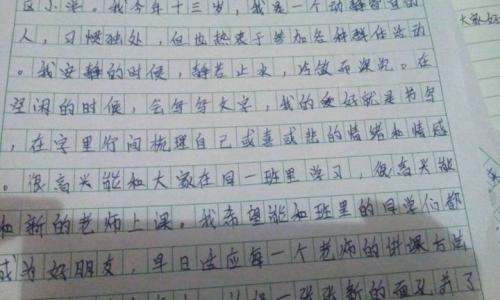 区小学。我今年十三岁，我是一个动静皆宜的
大家好
人，习惯独处，但也热衷于参加各种群体活动
。我安静的时候，静若止水，冷傲而深沉。在
空闲的时候，会写写文字，我的爱好就是书写
，在字里行间梳理自己或喜或悲的情绪和情感
。很高兴能和大家在同一班里学习，很高兴能
和新的老师上课。我希望能和班里的同学们都
成为好朋友，早日适应每一个老师的讲课方法
一张张新的面孔并了